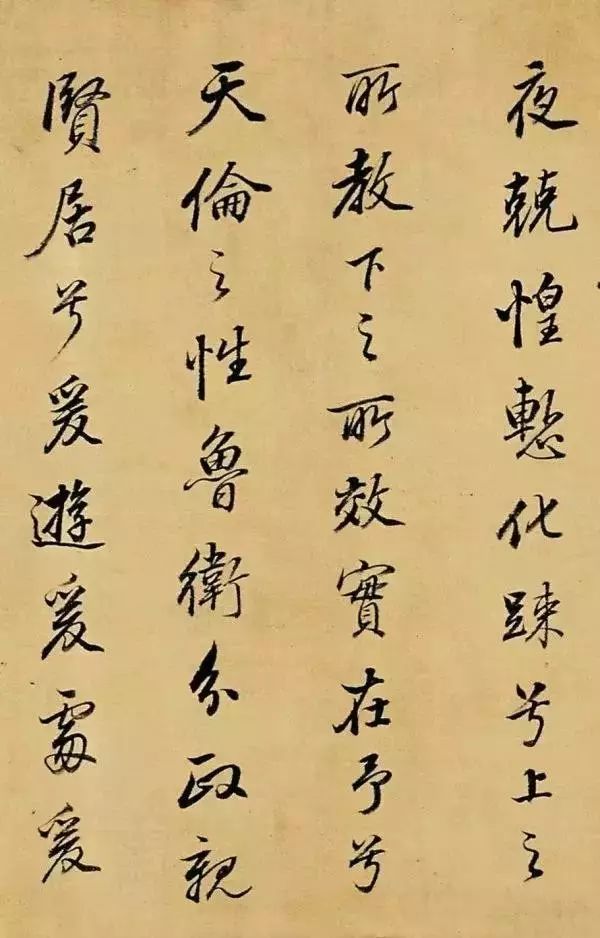 夜兢惶慙化踈兮上之
所教下之所效實在予兮
天倫之性魯衛分政親
賢居兮爰遊爰處爰